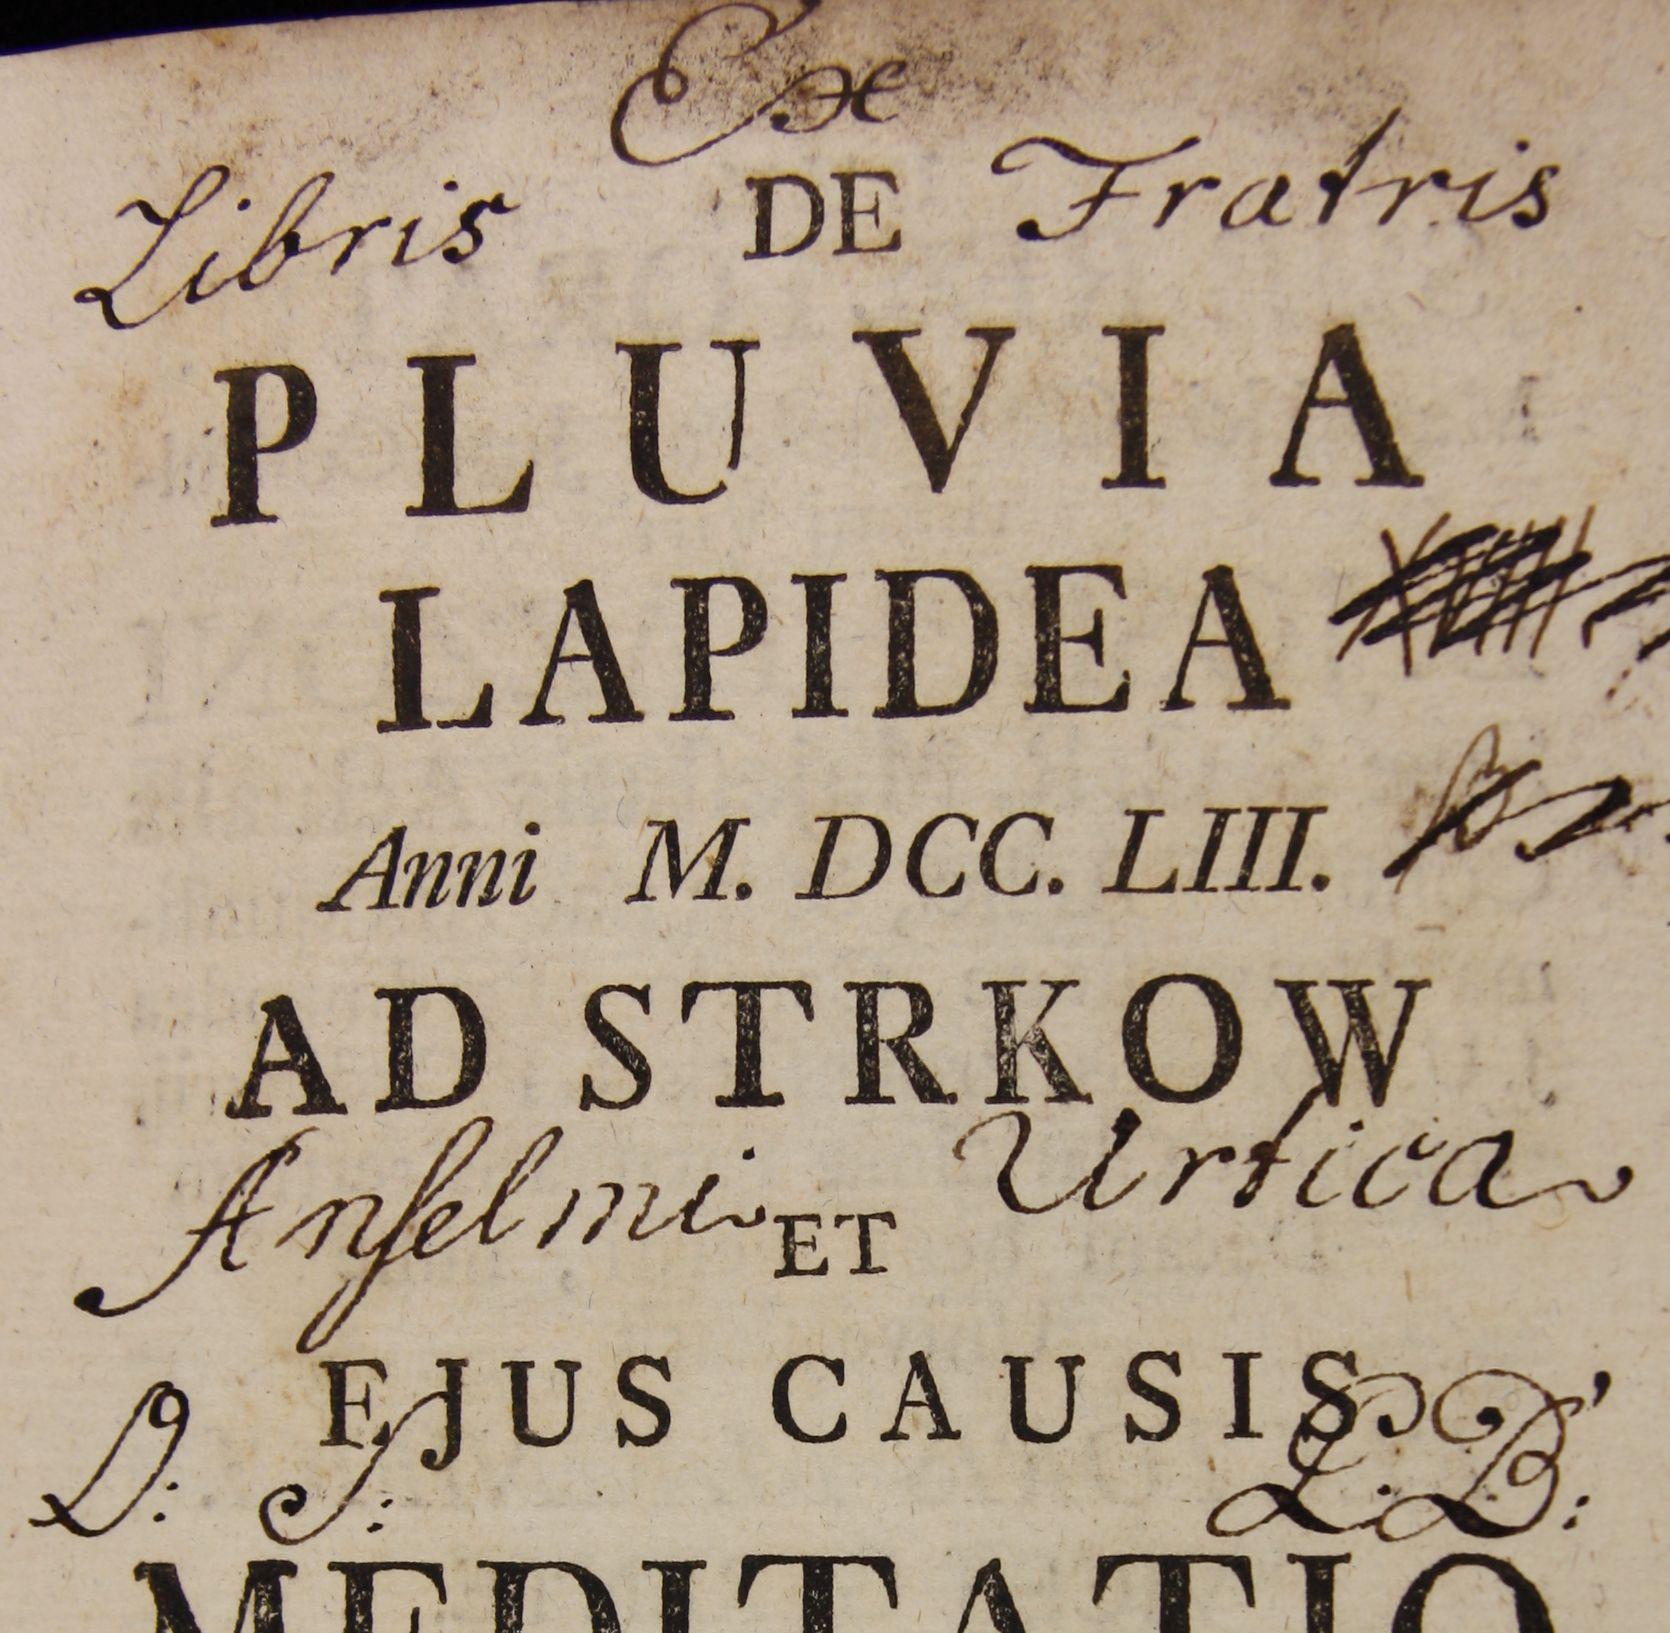 Ex
Libris DE Fratris
PLUVIA
LAPIDEA
Anni M. DCC. LIII.
AD STRKOW
Anſelmi ET Urtica
EJUS CAUSIS
D: J: L. B:
MEDITATIO